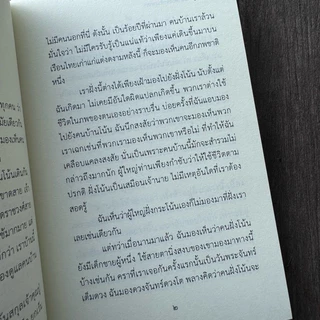 ไม่มีคนนอกที่นี่ ดังนั้น เป็นร้อยปีที่ผ่านมา คนบ้านเราล้วน
มั่นใจว่า ไม่มีใครรับรู้เป็นแน่แท้ว่าเพียงแค่เดินขึ้นมาบน
เรือนไทยเก่าแก่แต่งดงามหลังนี้ ก็จะมองเห็นคนอีกภพชาติ
หนึ่ง
เราฝั่งนี้ต่างได้เพียงเฝ้ามองไปยังฝั่งโน้น นับตั้งแต่
ฉันเกิดมา ไม่เคยมีอันใดผิดแปลกเกิดขึ้น พวกเราต่างใช้
ชีวิตในภพของตนเองอย่างราบรื่น บ่อยครั้งที่ฉันแอบมอง
ไปยังคนบ้านโน้น ฉันนึกสงสัยว่าพวกเขาอาจจะมองเห็นพวก
เราเฉกเช่นที่พวกเรามองเห็นพวกเขาหรือไม่ ที่ทำให้ฉัน
เคลือบแคลงสงสัย นั่นเป็นเพราะคนบ้านนี้มักจะสำรวมไม่
กล่าวถึงมากนัก ผู้ใหญ่ท่านเพียงกำชับว่าให้ใช้ชีวิตตาม
ปรกติ ฝั่งโน้นเป็นเสมือนเจ้านาย ไม่มีเหตุอันใดที่เราต้อง
สอดรู้
ฉันเห็นว่าผู้ใหญ่ฝั่งกระโน้นเองก็ไม่เคยมองมาที่ฝั่งเรา
เลยเช่นเดียวกัน
แต่ทว่าเมื่อนานมาแล้ว ฉันมองเห็นว่าคนฝั่งโน้น
ยังมีเด็กชายผู้หนึ่ง ใช้สายตานิ่งสงบของเขามองมาทางนี้
บ้างเช่นกัน คราที่เราเจอกันครั้งแรกนั้นเป็นวันพระจันทร์
เต็มดวง ฉันมองดวงจันทร์ดวงโต พลางคิดว่าคนฝั่งโน้นจะ
๒